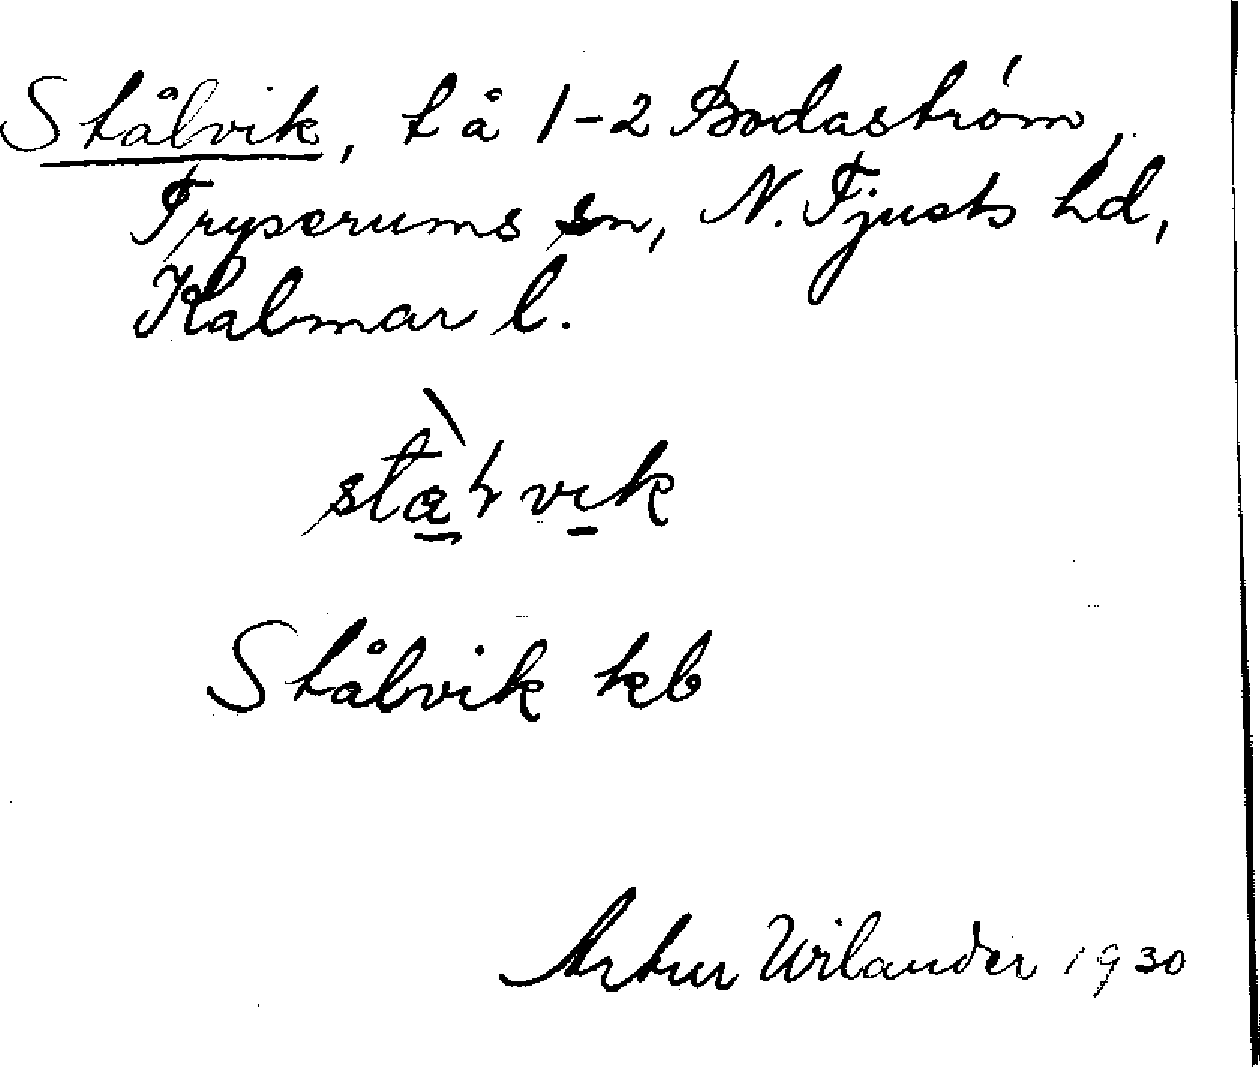 Stålvik, t å 1-2 Bodaström,
Tryserums sn, N. Tjusts hd,
Kalmar l.
Stålvik kb
Artur Wilander 1930